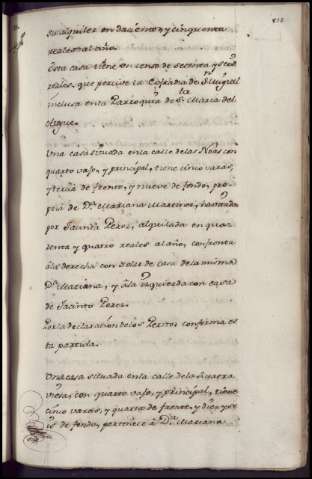 su alquiler en docientos, y cinquenta
reales al año.
Esta casa tiene un censo de setenta y
reales, que percive la Cofradia de Sn. Miguel
inclusa en la Parroquia de Sta. Maria del
Azogue.
Una casa situada en la calle de las Nôas con
quarto vajo, y principal, tiene cinco varas,
y tercia de frente, y nueve de fondo, pro-
pria de Da. Mariana havitada
por Jacinta Perez, alquilada en qua-
renta y quatro reales al año, confronta
â la derecha con solar de casa de la misma
Da. Mariana, y â la izquierda con casa
de Jacinto Perez.
Por la declaracion de los Peritos conferma es-
ta partida.
Una casa situada en la calle de la
viesas, con quarto vajo, y principal, tiene
cinco varas, y quarta de frente, y diez y se-
is de fondo, pertenece â Da. Mariana